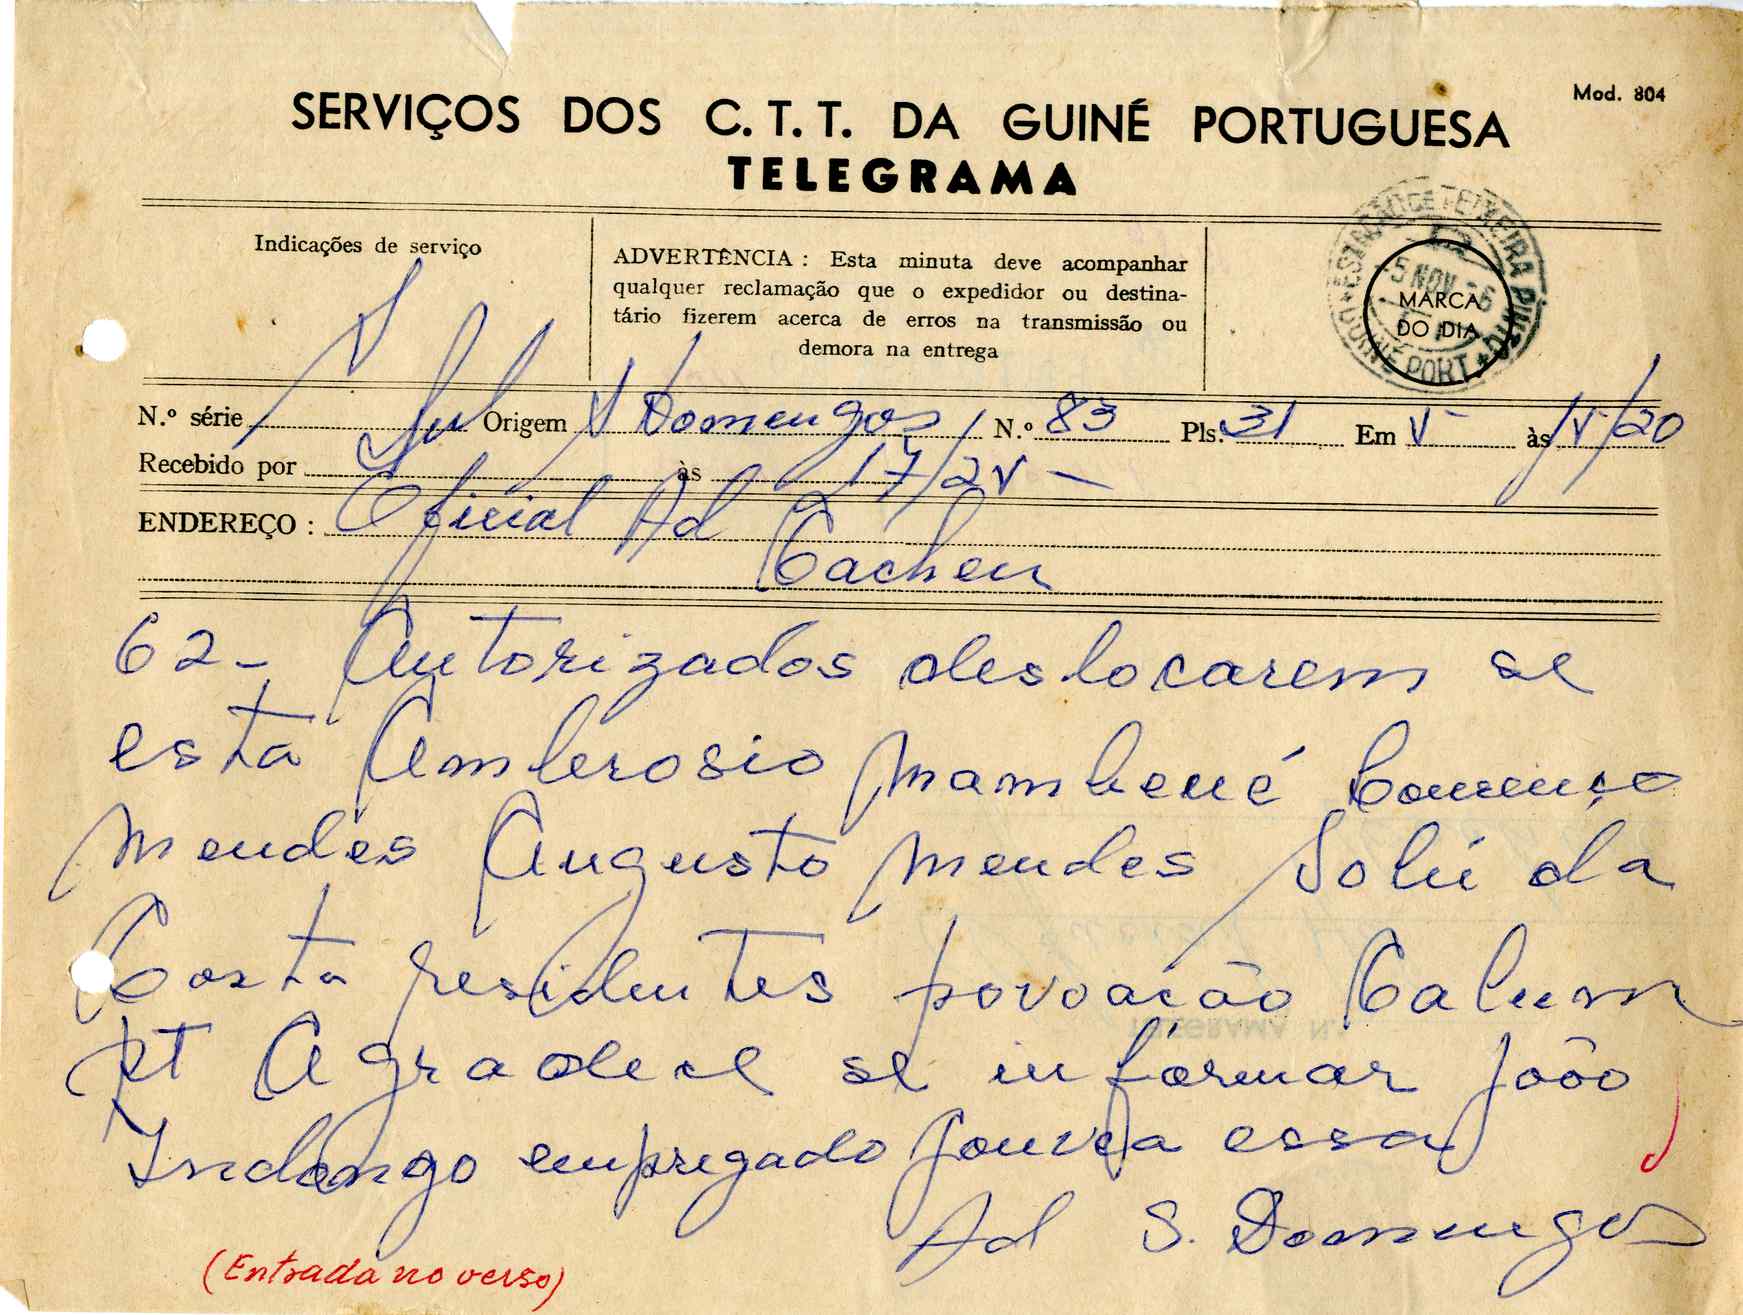 Mod. 804
SERVIÇOS DOS C. T. T. DA GUINÉ PORTUGUESA
TELEGRAMA
Indicações de serviço
ADVERTÊNCIA : Esta minuta deve acompanhar
qualquer reclamação que o expedidor ou destina-
tário fizerem acerca de erros na transmissão ou
demora na entrega
ESTAÇÃO DE TEIXEIRA PINTO
5 NOV
GUINÉ PORT.
MARCA
DO DIA
N.º série Origem S Domingos N.º 83 Pls. 31 Em 5 às 15/20
Recebido por às 17/25
ENDEREÇO : Oficial Ad
Cacheu
62 - Autorizados deslocarem se
esta Ambrosio Mambené Lourenço
Mendes Augusto Mendes da
Costa residentes povoação Calum
pt Agradece se informar João
Indongo empregado Gouveia essa
Ad S. Domingos
(Entrada no verso)